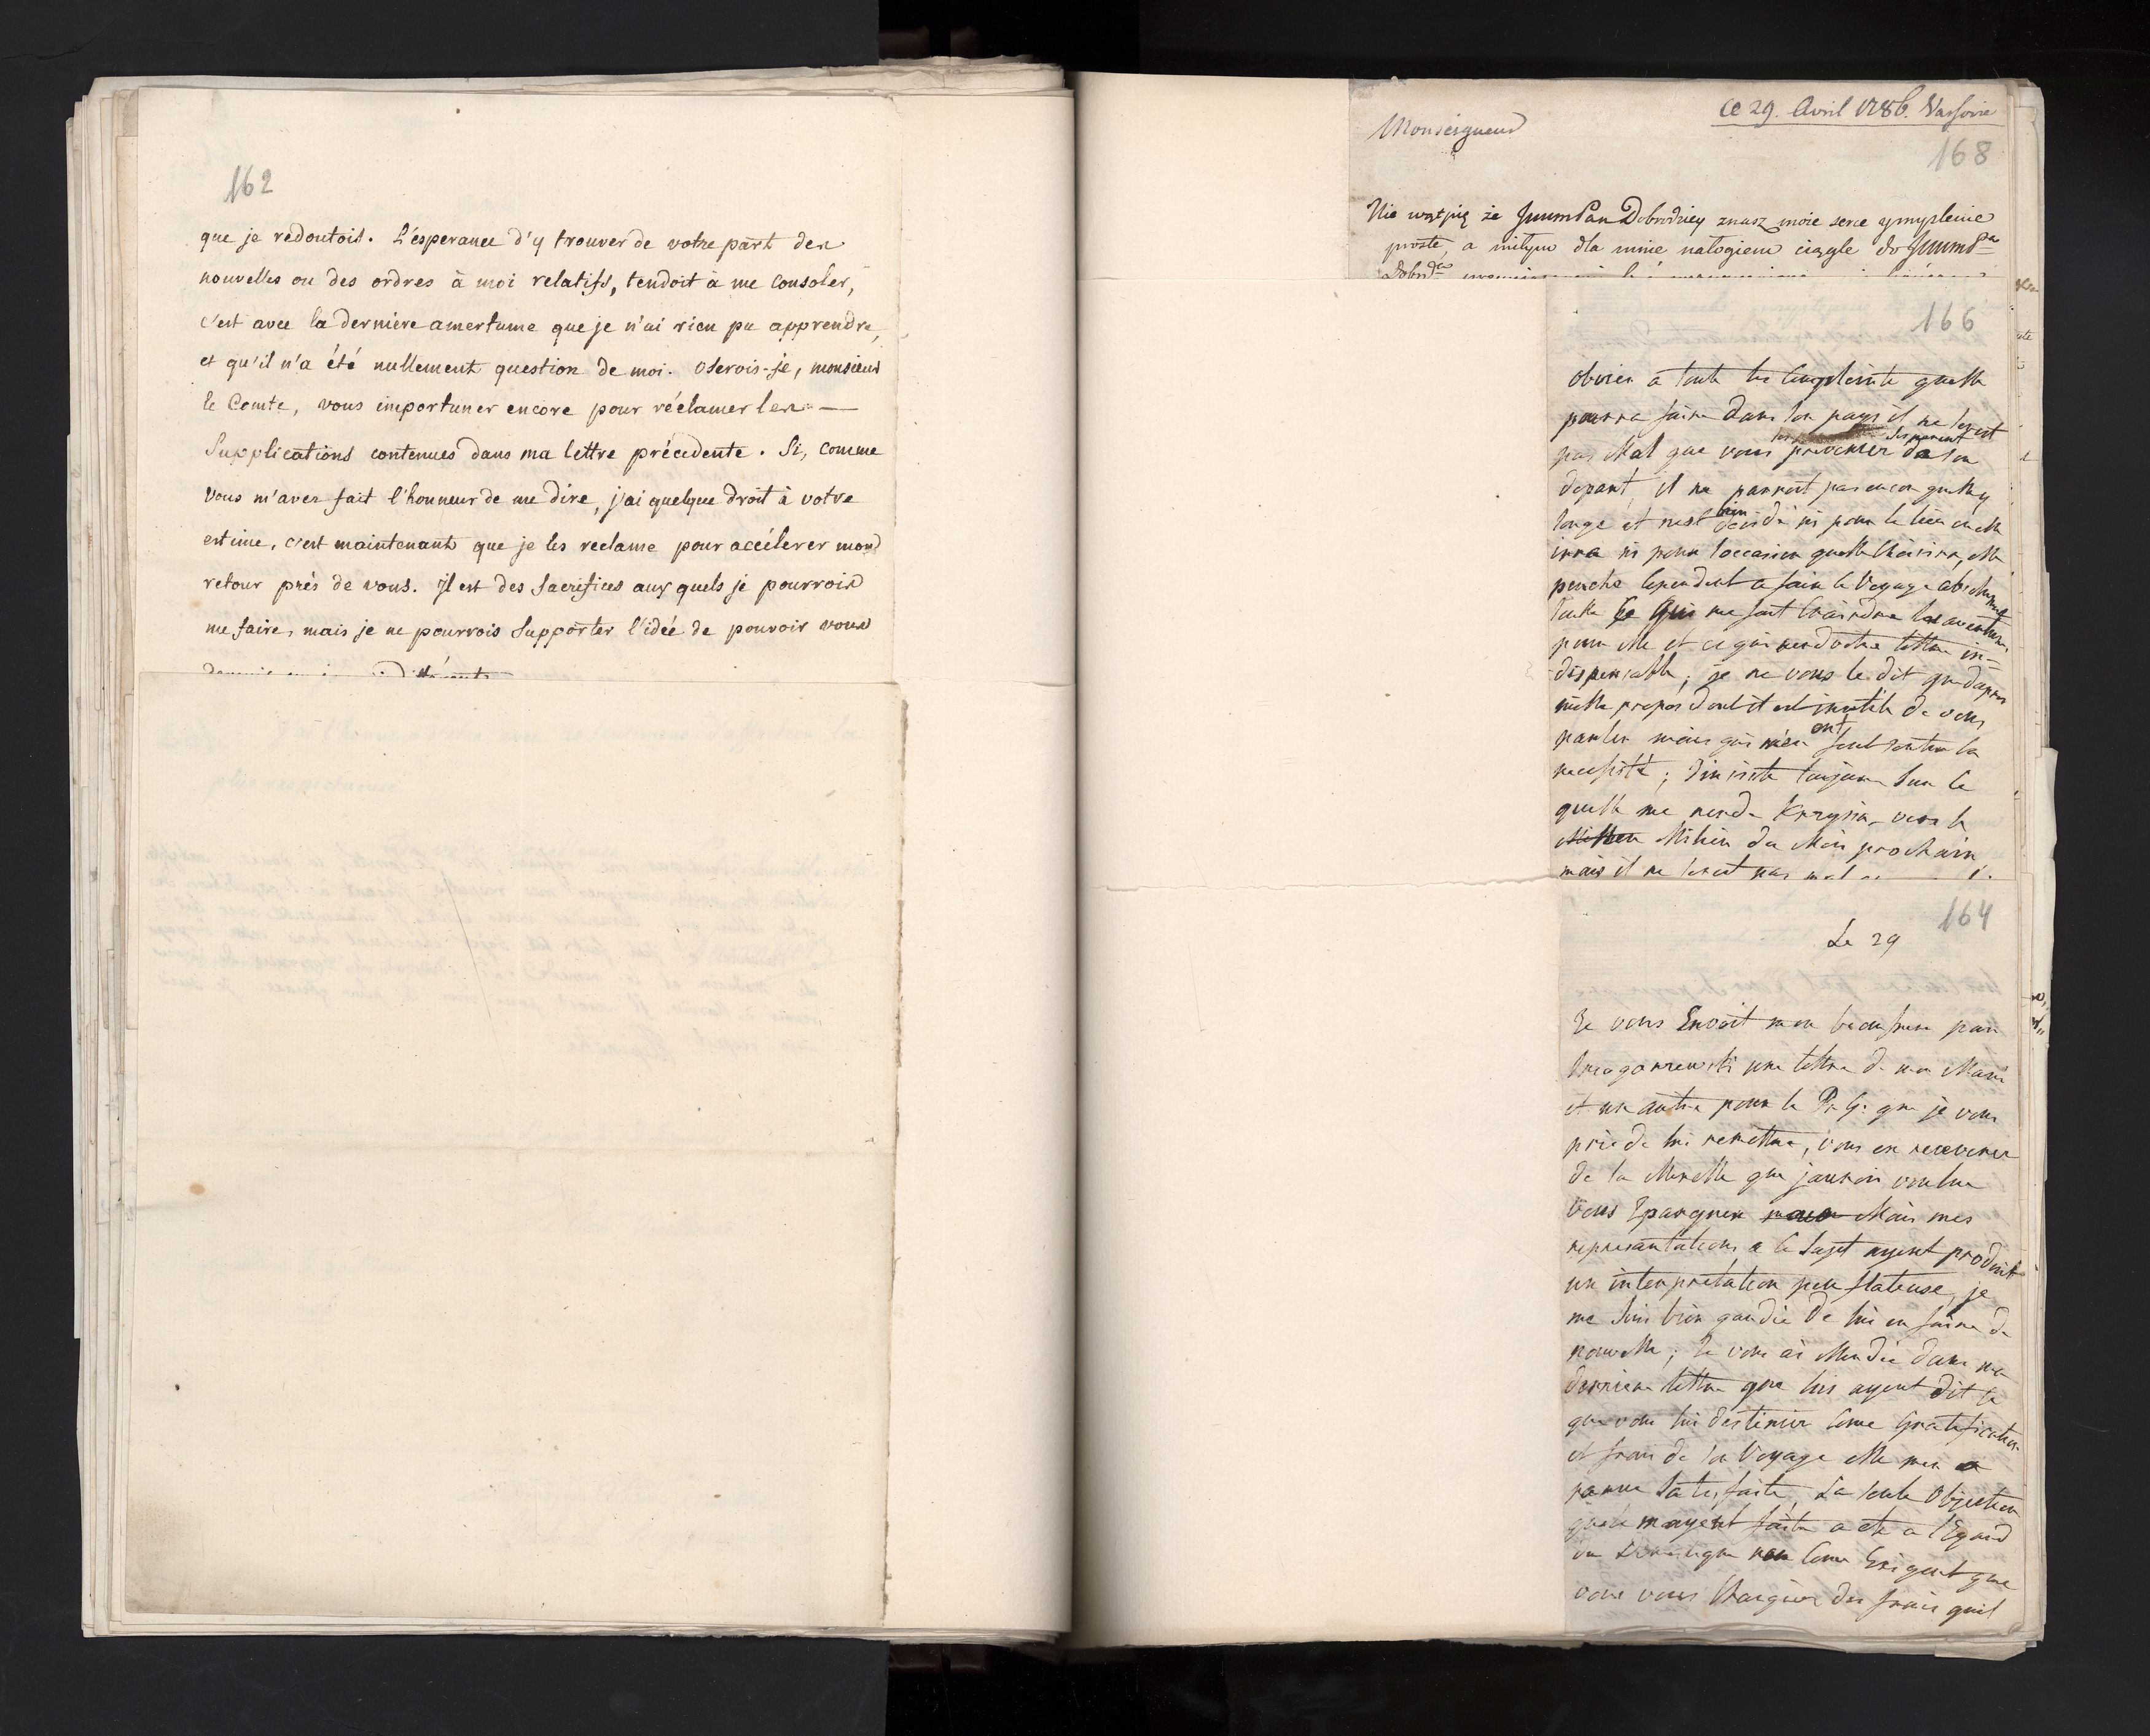 162
que je redoutois. L'esperance d'y trouver de votre part des
nouvelles ou des ordres à moi relatifs, tendoit à me consoler,
c'est avec la derniere amertume que je n'ai rien pu apprendre,
et qu'il n'a été nullement question de moi. Oserois-je, monsieur
le Comte, vous importuner encore pour réclamer les
Supplications contenues dans ma lettre précédente. Si, comme
vous m'avez fait l'honneur de me dire, j'ai quelque droit à votre
estime, c'est maintenant que je les reclame pour accélerer mon
retour près de vous. Il est des Sacrifices aux quels je pourrois
me faire, mais je ne pourrois Supporter l'idée de pouvoir vous
ce 29. Avril 1786. Varsovie
Monseigneur
168
Nie wątpię że JmmPan Dobrodziey znasz moie serce y myslenie
proste, a miłym dla mnie nałogiem ciągle do Jmm Pa
Dobrdza
166
obvier a toute les Complointe quelle
pourra faire dans son pays il ne seroit
pas Mal que vous prevenier de son
depart, il ne parroit pas encor quelle y
songe et nest bien decidé ni pour le lieu ou elle
irra ni pour loccasion quelle Choisira, elle
penche cependent a faire le Voyage absolument
seule ce qui me fait Craindre les aventures
pour elle et ce qui rend votre lettre in-
dispensable; je ne vous le dit que dapres
mille propos dont il est inutile de vous
parler mais qui m'en ont fait sentir la
necessité; Jinsiste toujours sur ce
quelle me rende Krzysia vers le
Milieu du Mois prochain
mais il ne seroit pas mal
164
Le 29
Je vous Envoit mon beaufrere par
une lettre de mon Mari
et un autre pour le Pr G: que je vous
prie de lui remettre, vous en recevrer
de la Murelle que jaurois voulue
vous Epargner Mais mes
represantations a ce sujet ayent produit
un interpretation peu flateuse, je
me suis bien gardie de lui en faire de
nouvelle; Je vous ai Mendie dans ma
derniere lettre que lui ayent dit ce
que vous lui destinier come Gratification
et frais de son Voyage elle men a
parue satisfaite, La seule Objection
mayent faite a ete a l'Egard
du non come Exigent que
vous vous Chargier des frais quil